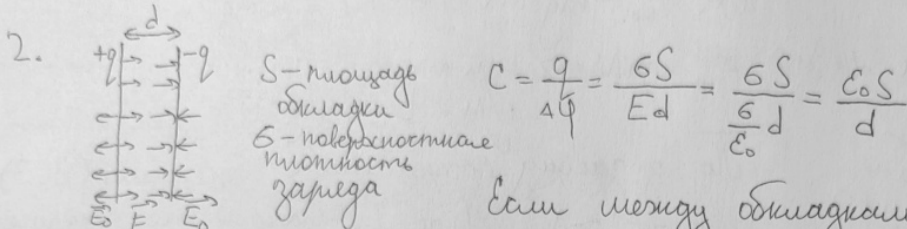 2.
d
+q
-q
S-площадь
обкладки
σ-поверхностная
плотность
заряда
E₀ E E₀
C = q/Δφ = σS/Ed = σS/(σ/ε₀ d) = ε₀S/d
Если между обкладкам